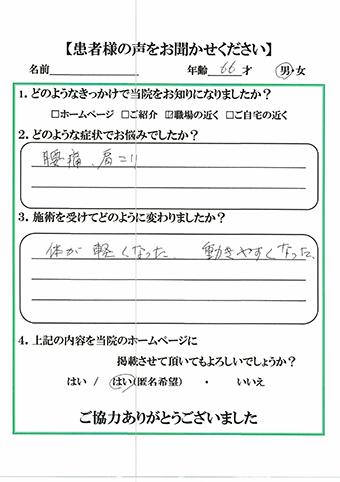 【患者様の声をお聞かせください】
名前 年齢 66 才 男・女
1. どのようなきっかけで当院をお知りになりましたか?
□ホームページ □ご紹介 ☑職場の近く □ご自宅の近く
2. どのような症状でお悩みでしたか?
腰痛、肩こり
3. 施術を受けてどのように変わりましたか?
体が軽くなった. 動きやすくなった、
4. 上記の内容を当院のホームページに
掲載させて頂いてもよろしいでしょうか?
はい / はい(匿名希望) ・ いいえ
ご協力ありがとうございました